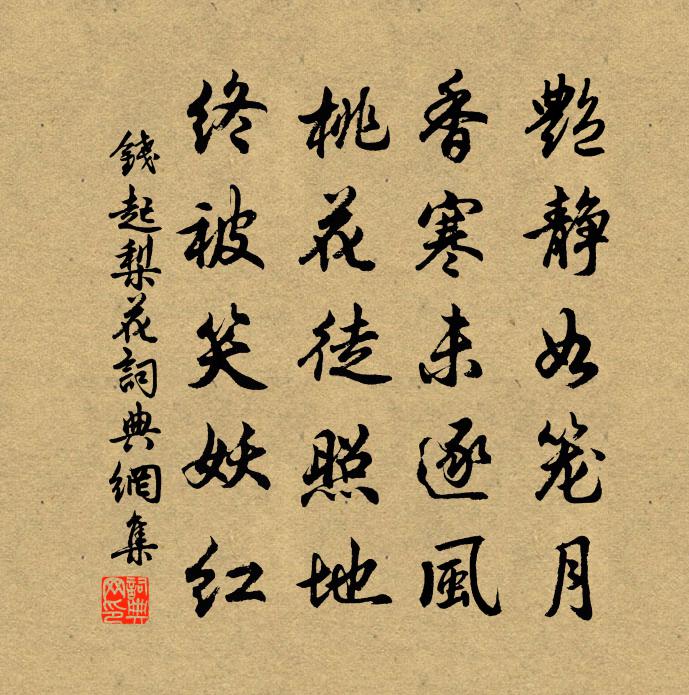 艷靜如笼月
香寒未逐風
桃花徒照地
终被笑妖红
錢起梨花詞典網集
詞典网印